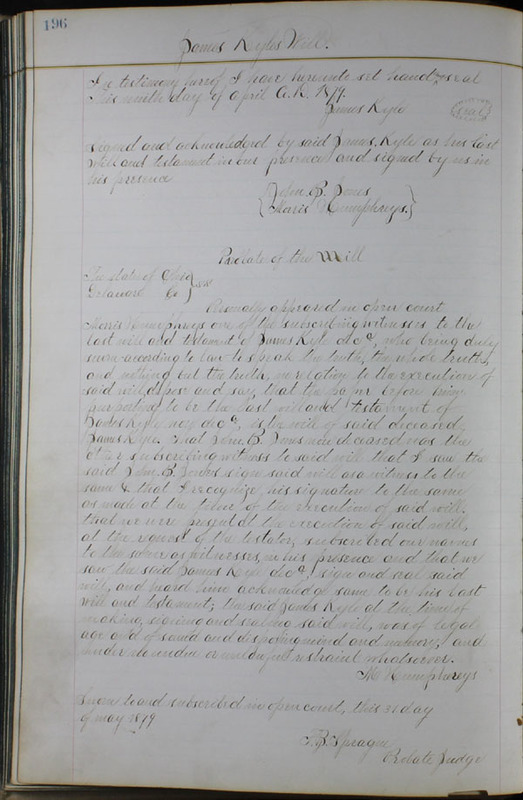 196
James Kyles Will.
In testimony hereof I have hereunto set hand & seal
This ninth day of April A.D. 1874.
James Kyle
seal
Signed and acknowledged by said James Kyle as his last
Will and testament in our presence and signed by us in
his presence
John B. Jones
Morris Humphreys.
Probate of the Will
The State of Ohio
Delaware Co ss
Personally appeared in open court
Morris Humphreys one of the subscribing witnesses to the
last will and testament of James Kyle decd, who being duly
sworn according to law to speak the truth, the whole truth,
and nothing but the truth, in relation to the execution of
said will, depose and say, that the paper before him
purporting to be the last will and testament of
James Kyle now decd, is the will of said deceased
James Kyle. That John B. Jones now deceased was the
other subscribing witness to said will that I saw the
said John B. Jones sign said will as a witness to the
same & that I recognize his signature to the same
as made at the time of the execution of said will.
that we were present at the execution of said will,
at the request of the testator, subscribed our names
to the same as witnesses, in his presence and that we
saw the said James Kyle decd, sign and seal said
will, and heard him acknowledge same to be his last
will and testament; the said James Kyle at the time of
making, signing and sealing said will, was of legal
age and of sound and disposing mind and memory, and
under no undue or unlawful restraint whatsoever.
M. Humphreys
Sworn to and subscribed in open court, this 31 day
of May 1879
F. B. Sprague
Probate Judge